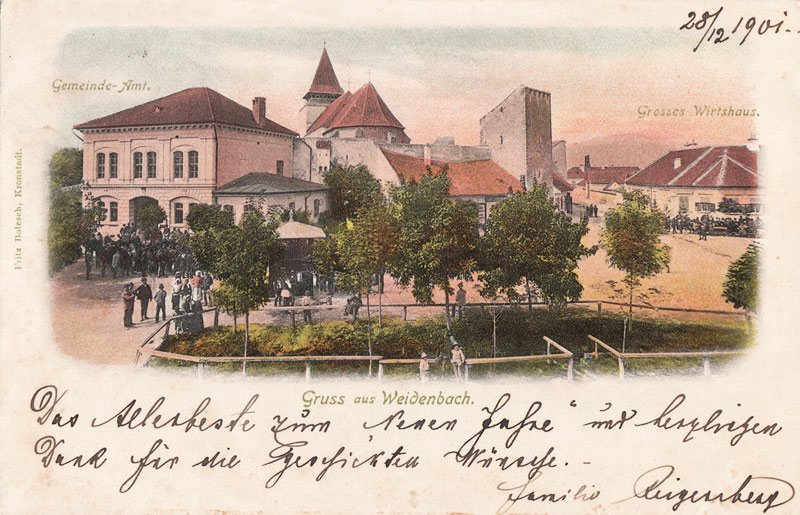 28/12 1901.
Gemeinde-Amt.
Grosses Wirtshaus.
Fritz Bolesch, Kronstadt.
Gruss aus Weidenbach.
Das Allerbeste zum "Neuen Jahre" und herzlichen
Dank für die Geschickten Wünsche.-
Familie